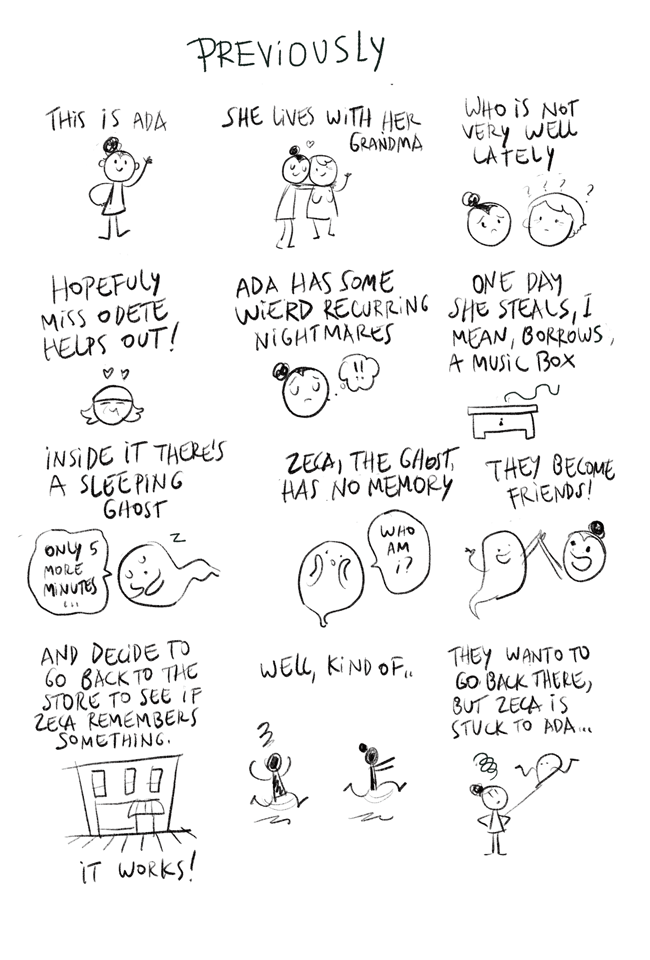 PREVIOUSLY
THIS IS ADA
SHE LIVES WITH HER
GRANDMA
WHO IS NOT
VERY WELL
LATELY
? ? ? ?
HOPEFULY
MISS ODETE
HELPS OUT!
ADA HAS SOME
WIERD RECURRING
NIGHTMARES
!!
ONE DAY
SHE STEALS, I
MEAN, BORROWS,
A MUSIC BOX
INSIDE IT THERE'S
A SLEEPING
GHOST
ONLY 5
MORE
MINUTES
...
Z
ZECA, THE GHOST,
HAS NO MEMORY
WHO
AM
I?
THEY BECOME
FRIENDS!
AND DECIDE TO
GO BACK TO THE
STORE TO SEE IF
ZECA REMEMBERS
SOMETHING.
IT WORKS!
WELL, KIND OF..
THEY WANTO TO
GO BACK THERE,
BUT ZECA IS
STUCK TO ADA...